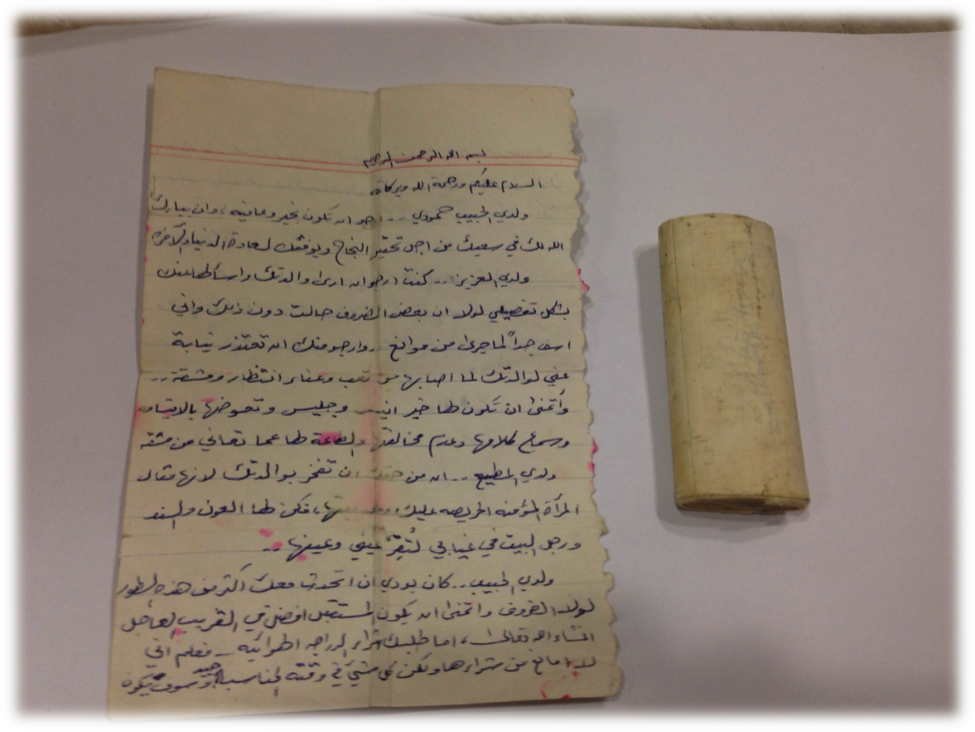 بسم الله الرحمن الرحيم
السلام عليكم ورحمة الله وبركاته
ولدي الحبيب حمودي .. ارجو ان تكون بخير وعافية ، وان يبارك
الله لك في سعيك من اجل تحقيق النجاح ويوفقك لسعادة الدنيا والآخرة
ولدي العزيز .. كنت ارجو ان ارى والدتك و عنك
بشكل تفصيلي لولا ان بعض الضروف حالت دون ذلك واني
اسف جداً لما جرى من موانع .. وارجو منك ان تعتذر نيابة
عني لوالدتك لما اصابها من تعب وعناء انتظار ومشقة ..
وأتمنى ان تكون لها خير انيس وجليس وتعوضها بالابتسامه
وسماع كلامها وعدم مخالفتها والطاعة لها عما تعاني من مشقه
ولدي المطيع .. ان من حقك ان تفخر بوالدتك لانها مثال
المرأة المؤمنه الحريصه عليك ، فكن لها العون والسند
ورجل البيت في غيابي لتقرّ عيني وعينها ..
ولدي الحبيب .. كان بودي ان اتحدث معك اكثر من هذه السطور
لولا الضروف واتمنى ان يكون المستقبل افضل في القريب العاجل
انشاء الله تعالى ، اما طلبك شراء الدراجه الهوائيه .. فعلم اني
لا امانع من شراءها ولكن كل شيئ في وقته المناسب جيد وسوف تكون